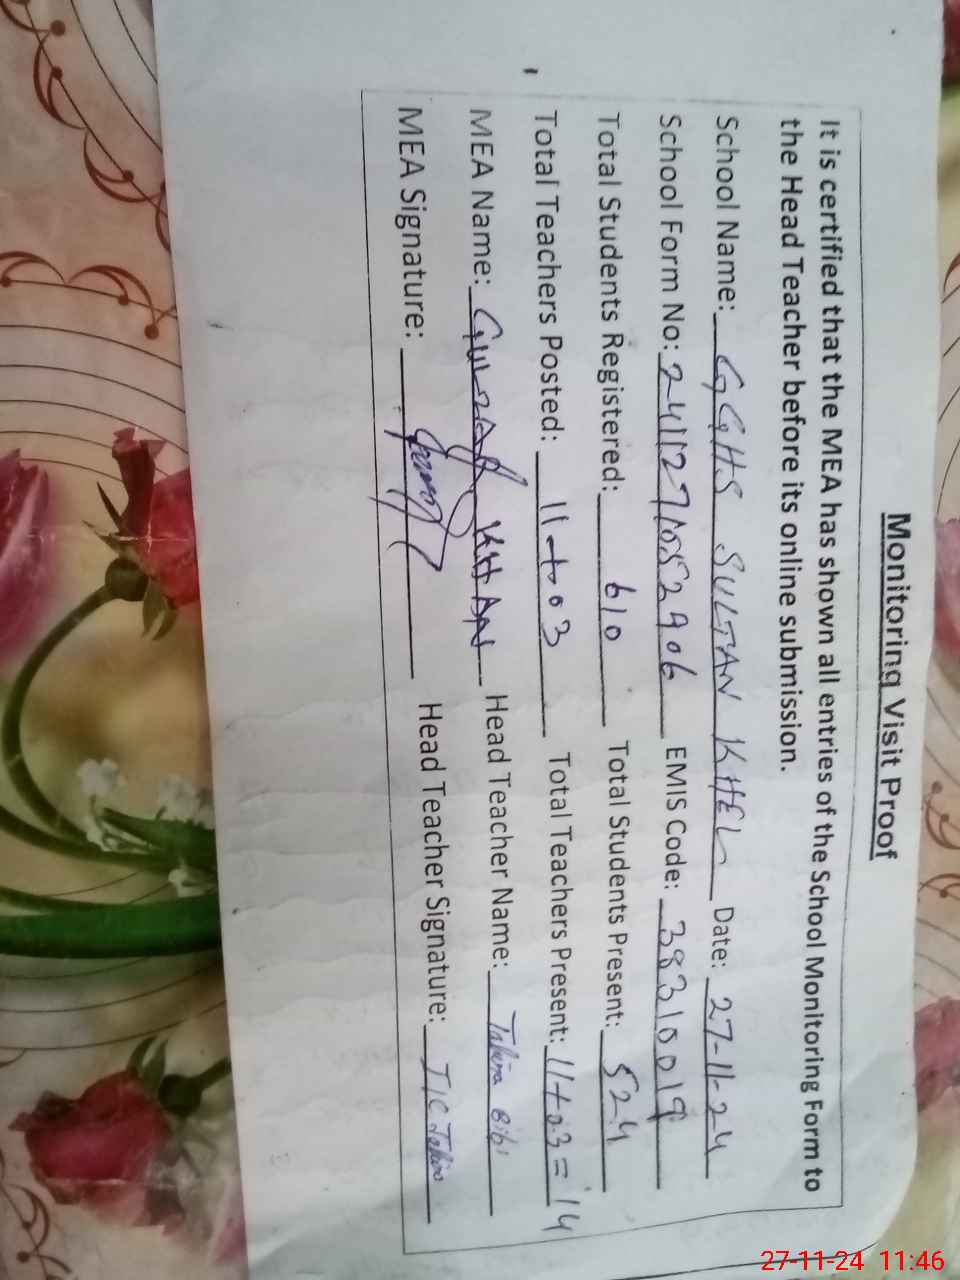 Monitoring Visit Proof
It is certified that the MEA has shown all entries of the School Monitoring Form to
the Head Teacher before its online submission.
School Name: GGHS SULTAN KHEL Date: 27-11-24
School Form No: 24112710552906 EMIS Code: 38310019
Total Students Registered: 610 Total Students Present: 524
Total Teachers Posted: 11+03 Total Teachers Present: 11+03=14
MEA Name: GULZAR KHAN Head Teacher Name: Tahira Bibi
MEA Signature: Head Teacher Signature: TIC Tahira
27-11-24 11:46